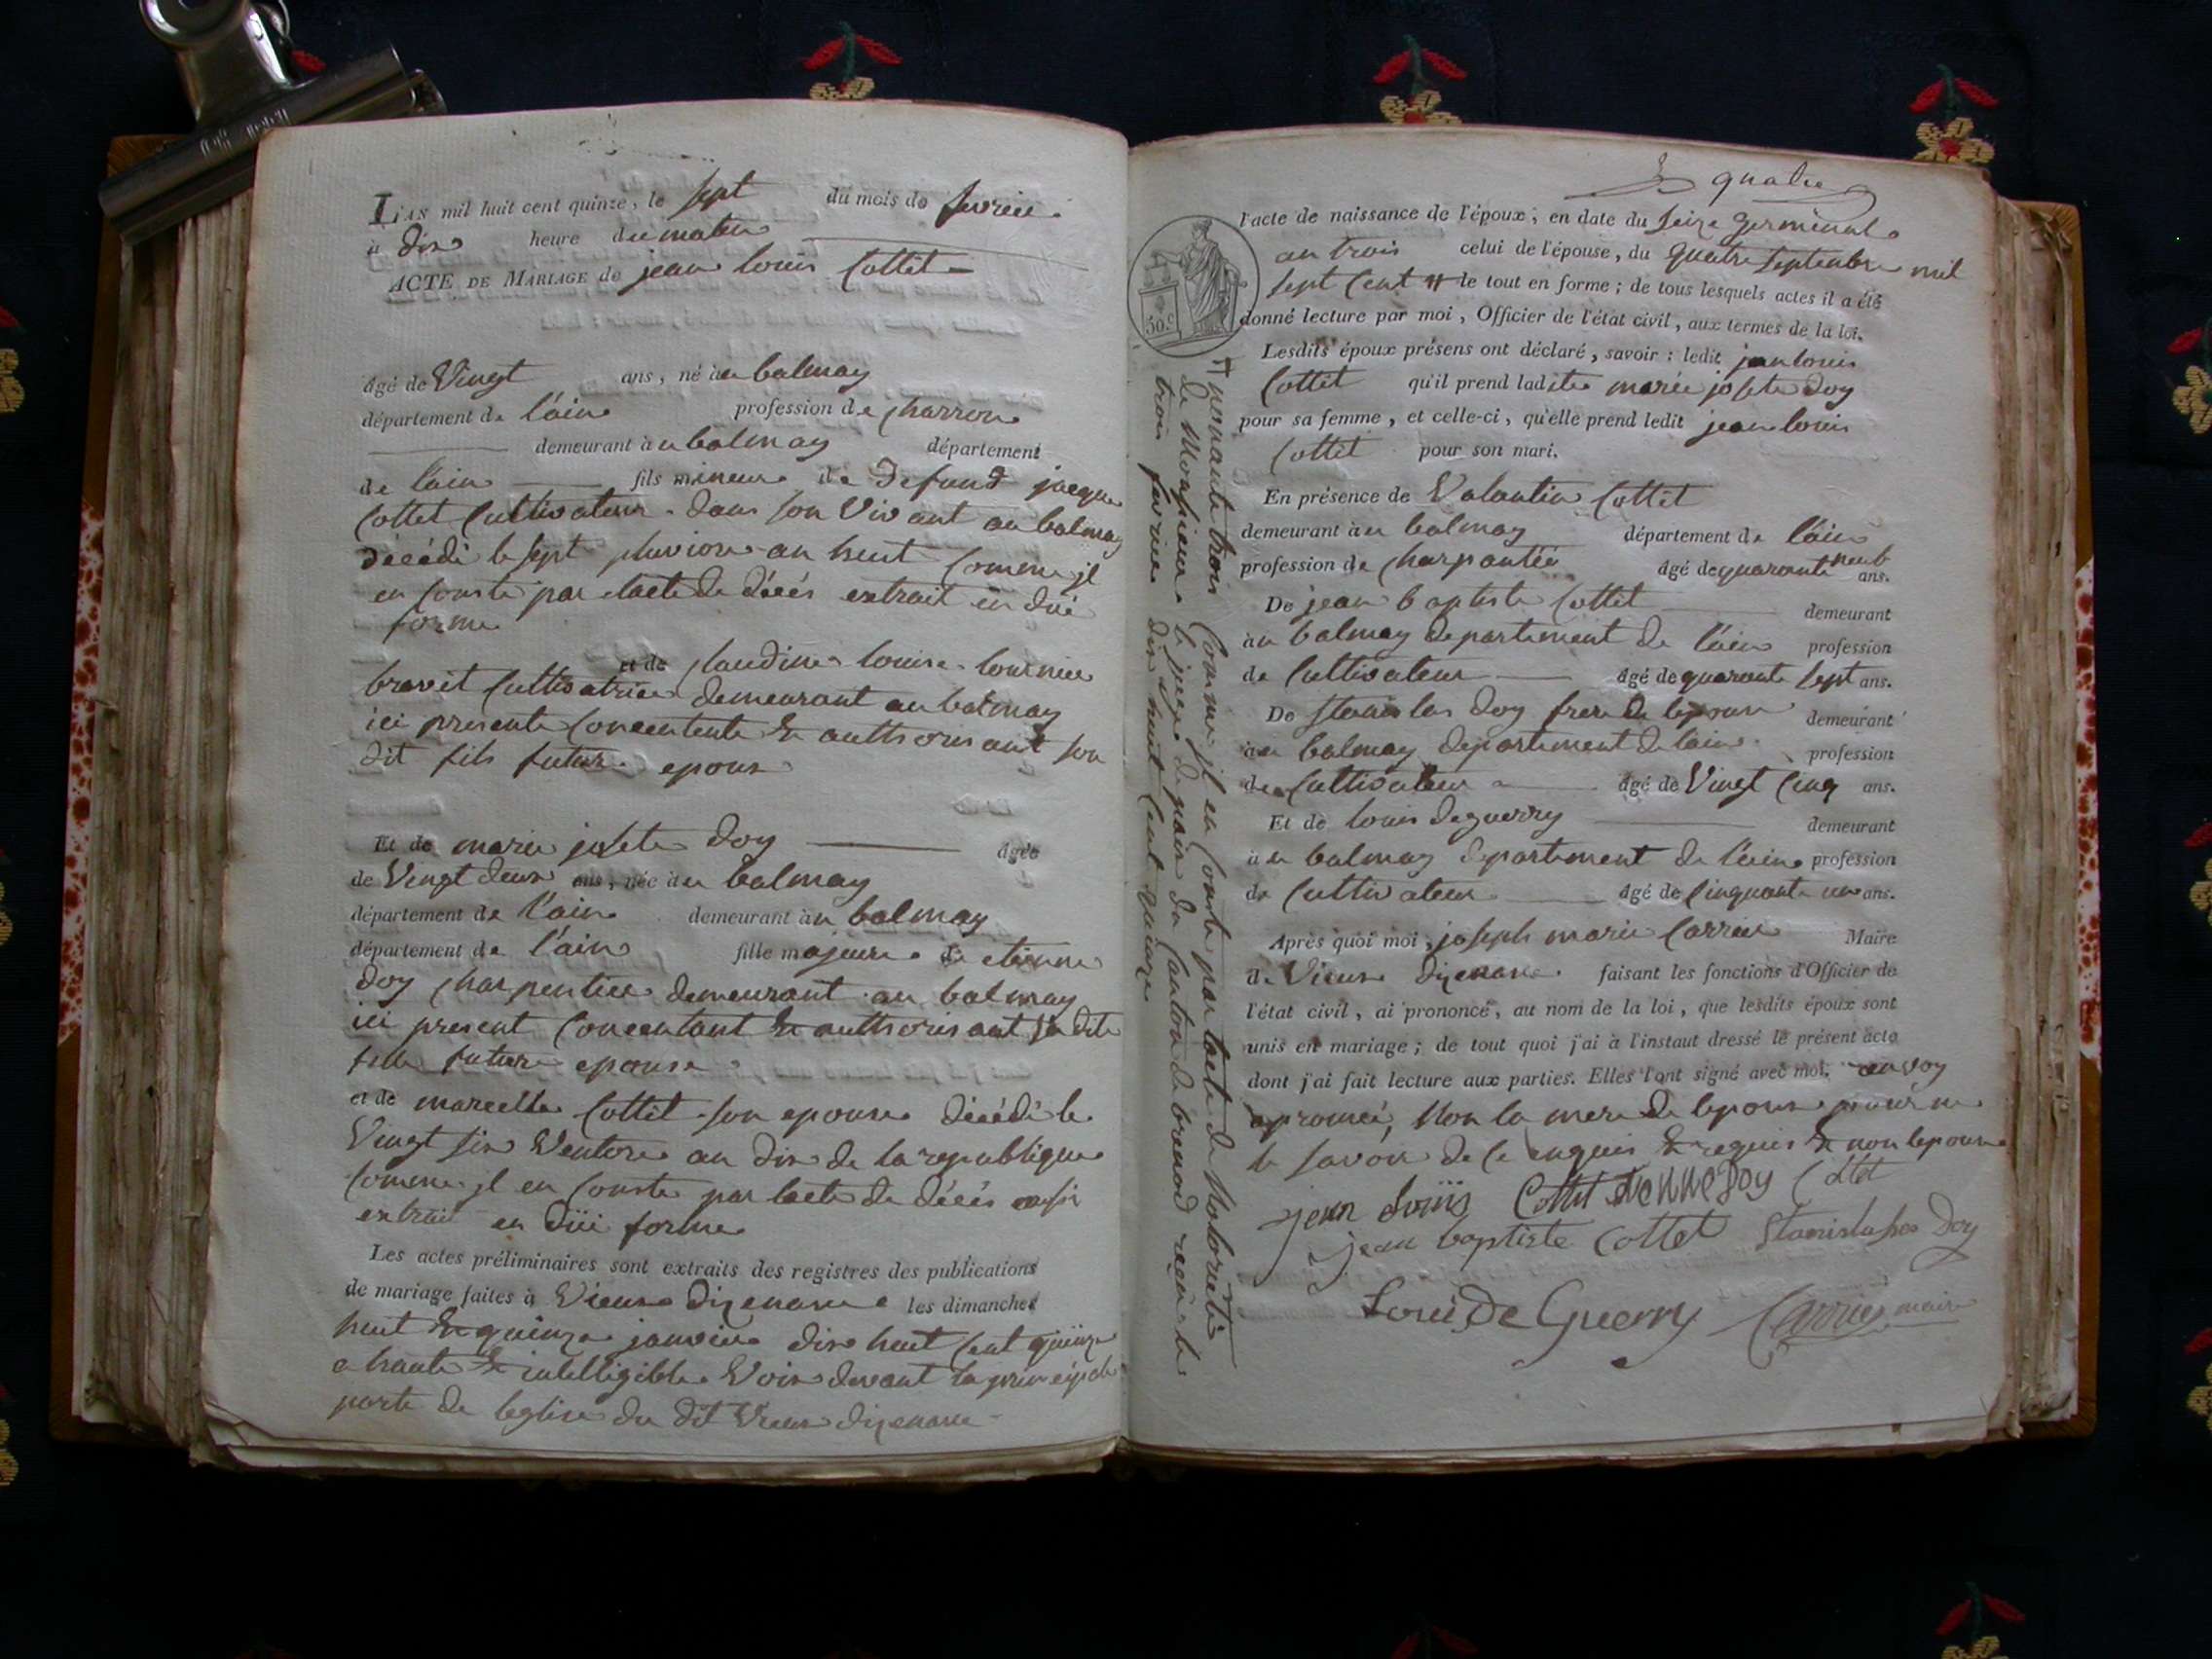 L'AN mil huit cent quinze, le sept du mois de fevrier
à dix heure du matin
ACTE DE MARIAGE de jean louis Cottet
âgé de Vingt ans, né à au balmay
département de l'ain profession de charron
demeurant à au balmay département
de l'ain fils mineur de defunt jacque
Cottet Cultivateur dans son Vivant au balmay
décédé le sept pluviose an huit Comme jl
en Conste par lacte de décés extrait en due
forme
et de Claudine louise tournier
bravet Cultivatrice demeurant au balmay
ici presente Concentente & authorisant son
dit fils futur epoux
Et de marie josete Doy âgée
de Vingt deux ans, née à au balmay
département de l'ain demeurant à au balmay
département de l'ain fille majeure de etienne
Doy charpentier demeurant au balmay
ici present Concentant & authorisant sa dite
fille future epouse
et de marcelle Cottet son epouse décédé le
Vingt six Ventose an dix de la republique
Comme jl en Conste par lacte de décés aussi
extrait en düe forme
Les actes préliminaires sont extraits des registres des publications
de mariage faites à Vieux dizenave les dimanches
huit & quinze janvier dix huit Cent quinze
a haute & intelligible Voix devant la principale
porte de leglise du dit Vieux dizenave
quatre
l'acte de naissance de l'époux, en date du seize germinal
an trois celui de l'épouse, du quatre septembre mil
sept Cent # le tout en forme ; de tous lesquels actes il a été
50.c donné lecture par moi, Officier de l'état civil, aux termes de la loi.
Lesdits époux présens ont déclaré, savoir : ledit jean louis
Cottet qu'il prend ladite marie josete doy
pour sa femme, et celle-ci, qu'elle prend ledit jean louis
Cottet pour son mari.
En présence de Valentin Cottet
demeurant à au balmay département de l'ain
profession de charpantié âgé de quarante neuf ans.
De jean baptiste Cottet demeurant
à au balmay departement de l'ain profession
de Cultivateur âgé de quarante sept ans.
De stanislas Doy frere de lepouse demeurant
à au balmay departement de lain profession
de Cultivateur âgé de Vingt Cinq ans.
Et de louis deguerry demeurant
à au balmay departement de l'ain profession
de Cultivateur âgé de Cinquante un ans.
Après quoi moi, joseph marie Carrier Maire
de Vieux dizenave faisant les fonctions d'Officier de
l'état civil, ai prononcé, au nom de la loi, que lesdits époux sont
unis en mariage ; de tout quoi j'ai à l'instant dressé le présent acte
dont j'ai fait lecture aux parties. Elles l'ont signé avec moi.
Non la mere de lepoux pour ne
le savoir de ce enquis & requis & non lepouse
jean louis Cottet etienne Doy Cottet
jean baptiste Cottet Stanislas Doy
Louis De Guerry Carrier maire
# nonante trois Comme jl en Conste par lacte de Notorieté
de Monsieur le juge de paix du Canton de brenod reçu le
trois fevrier dix huit Cent quinze